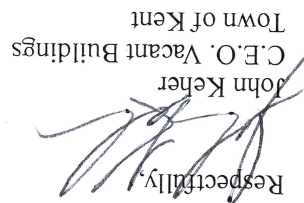 Respectfully,
John Keher
C.E.O. Vacant Buildings
Town of Kent